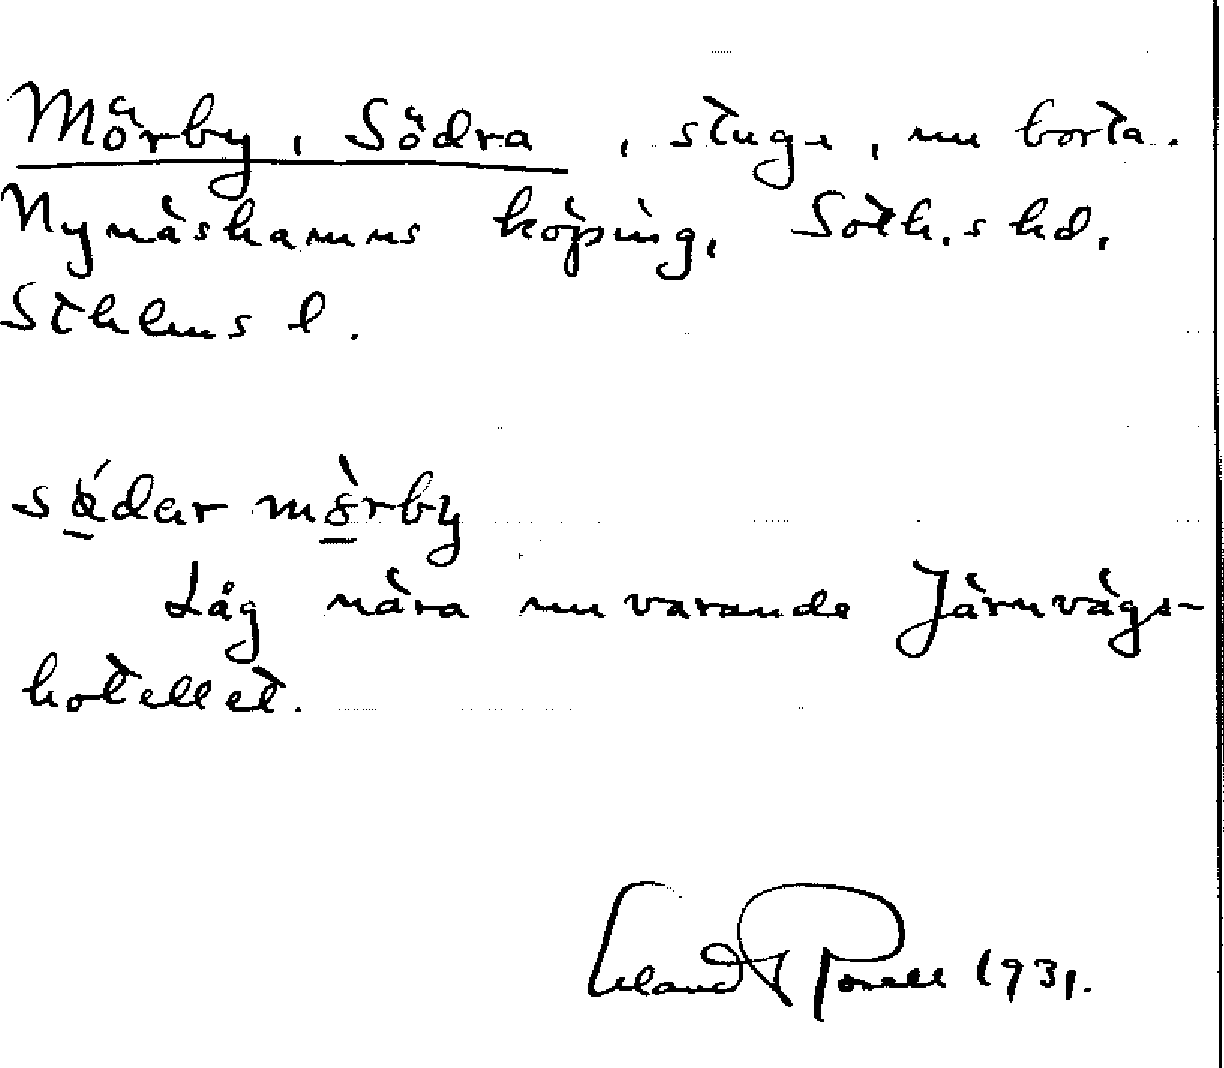 Mörby, Södra, stuga, nu borta.
Nynäshamns köping, Soth.s hd,
Sthlms l.
mörby
Låg nära nuvarande Järnvägs-
hotellet.
1931.